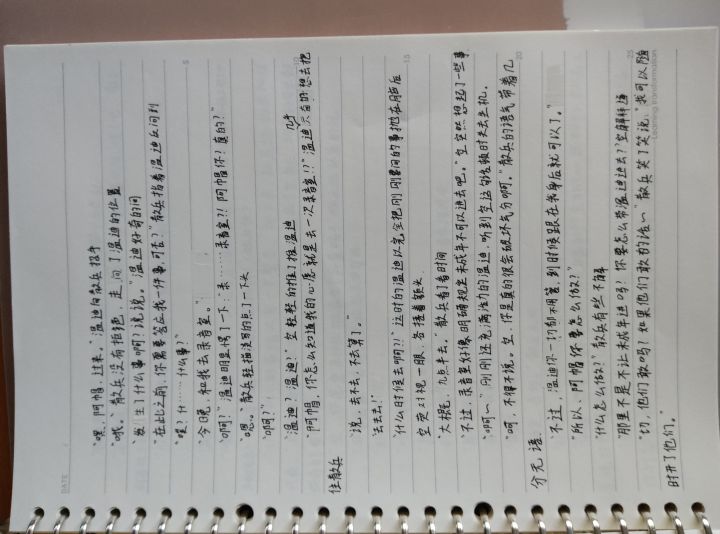 DATE
"嘿，阿帽，过来。"温迪向散兵招手
"哦。"散兵没有拒绝，走向了温迪的位置
"发生了什么事啊，说说。"温迪好奇的问
"在此之前，你需要答应我一件事，可否？"散兵指着温迪反问到
"嗯？什……什么事？"
"今晚，和我去录音室。"
"啊？"温迪明显愣了一下，"录……录音室？！阿帽你？真的？"
"嗯。"散兵轻描淡写的点了一下头
"啊？"
"温迪？温迪？"空轻轻的推了推温迪
"阿帽，你怎么知道我的心愿就是去一次录音室！？"温迪几乎是扑过去把
住散兵
"说，去不去，不去算了。"
"去去去！"
什么时候去啊？！这时的温迪以完全把刚刚要问的事抛在脑后
空荧对视一眼，各捂着额头
"大概，九点半去。"散兵看了看时间
"不过，录音室好像明确规定未成年不可以进去吧。"空突然想起了一些事
"啊～"刚刚还充满活力的温迪，听到空这句话顿时失去生机，
"呵，不得不说。空，你是真的很会破坏气氛啊。"散兵的语气带着几
分无语
"不过，温迪你一切都不用管，到时候跟在我身后就可以了。"
"所以，阿帽你要怎么做？"
"什么怎么做？"散兵有些不解
那里不是不让未成年进吗？你要怎么带温迪进去？"空解释道
"切，他们敢吗？如果他们敢的话～"散兵笑了笑说，"我可以随
时开了他们。"